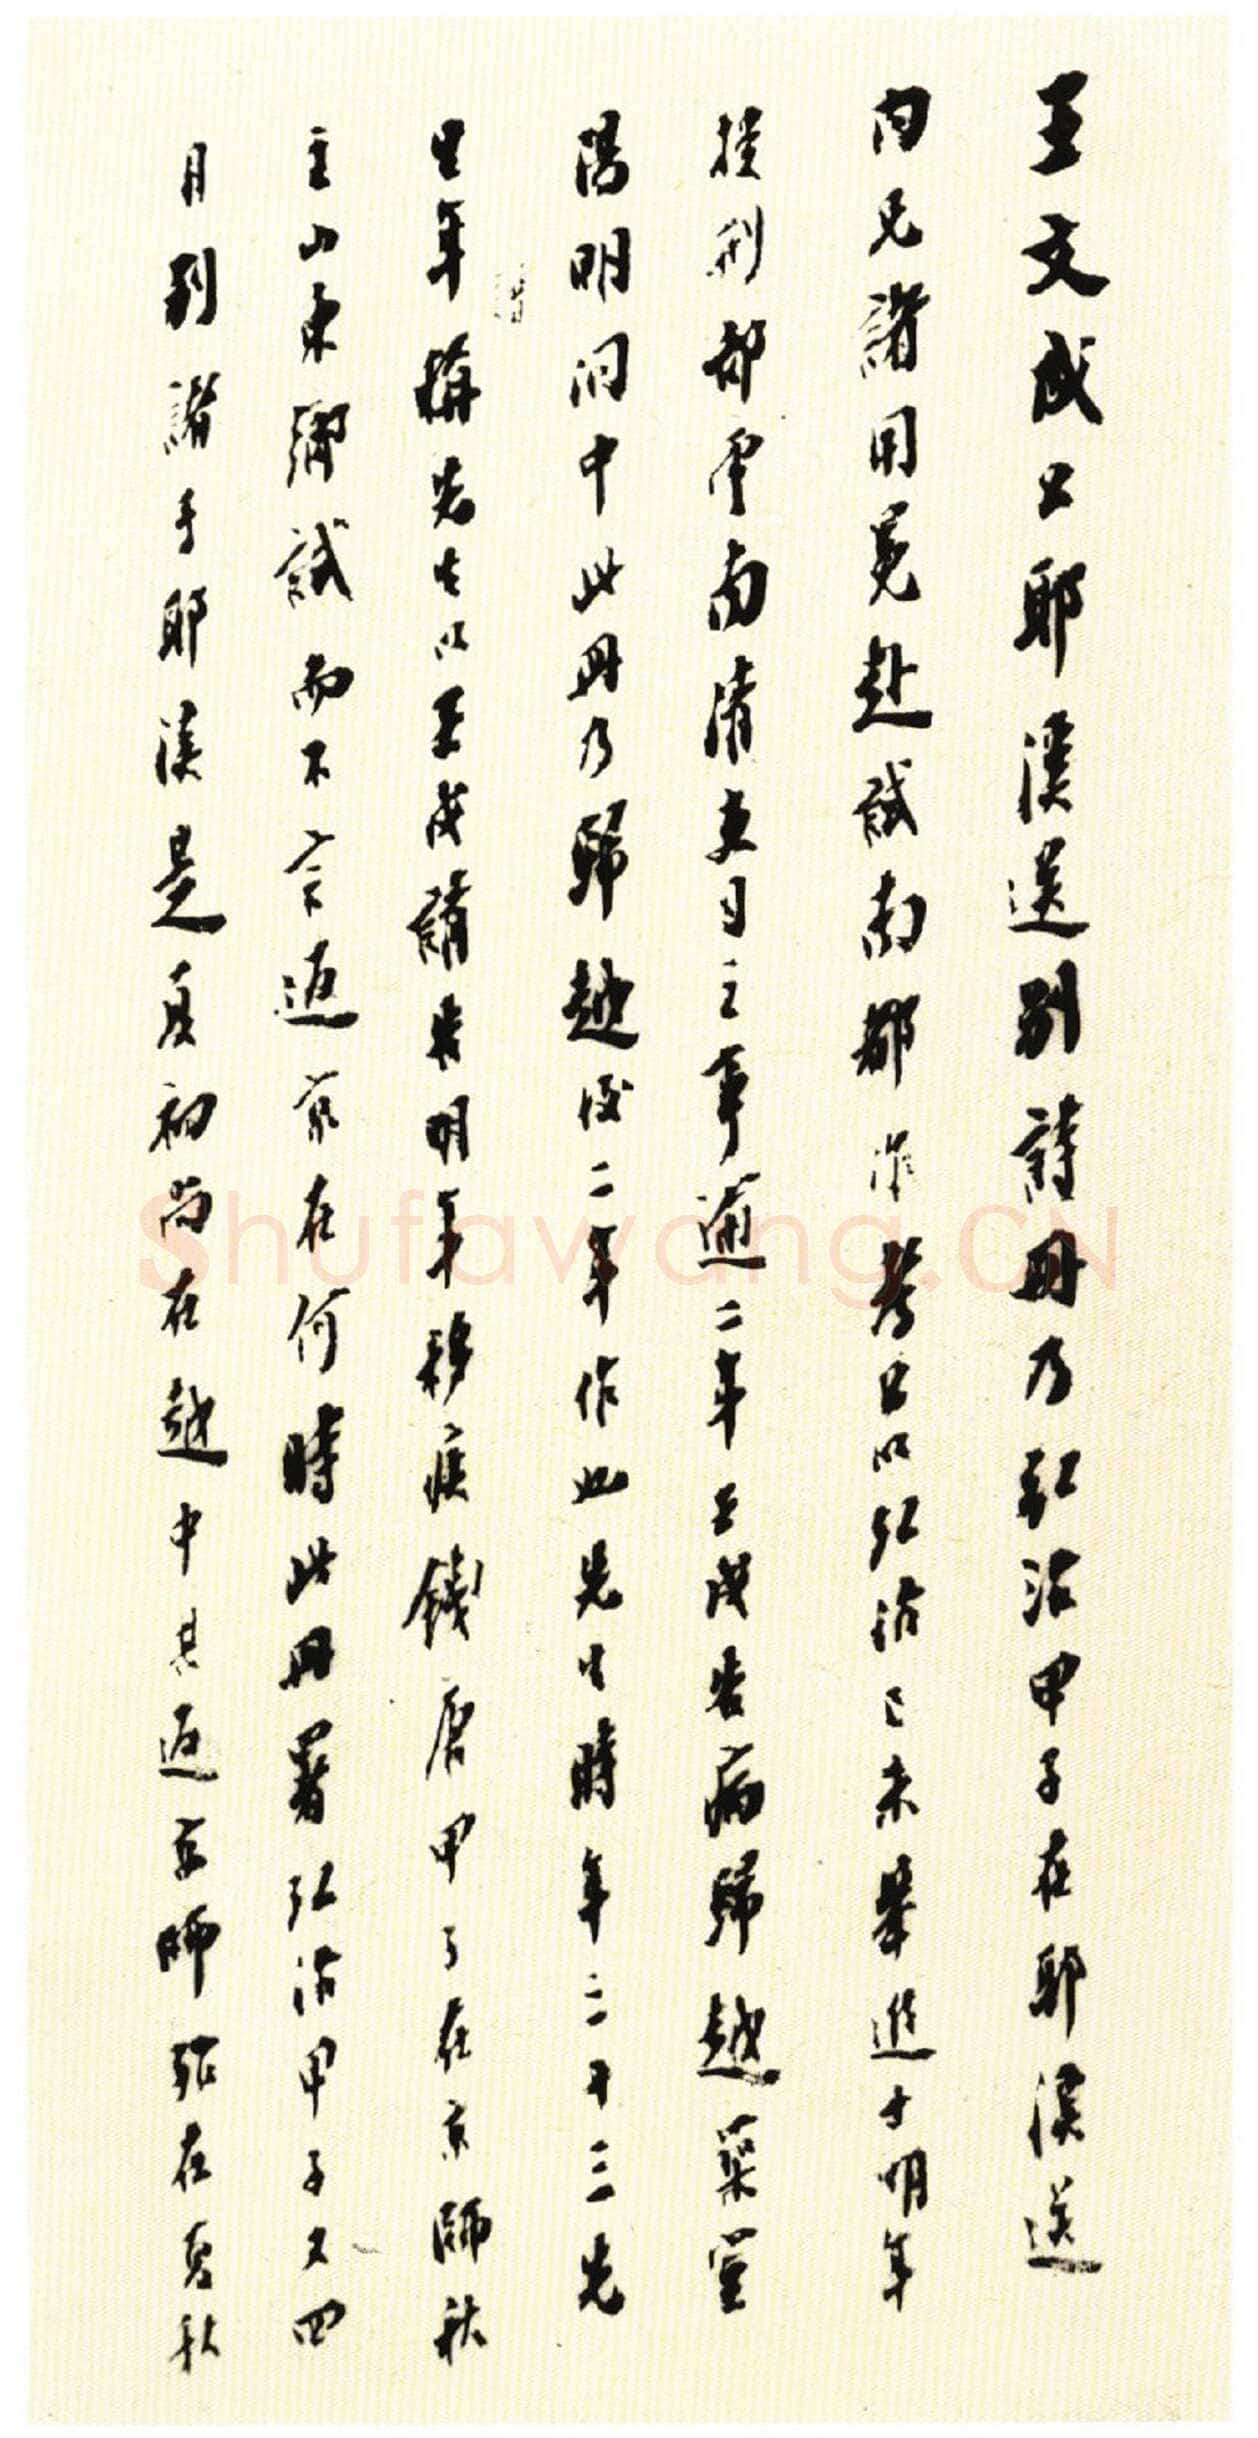 王文成公耶溪送別詩冊乃弘治甲子在耶溪送
內兄諸用冕赴試南都作考公以弘治己未舉進士明年
授刑部雲南清吏司主事逾二年壬戌告病歸越築室
陽明洞中此冊乃歸越後二年作也先生時年三十三先
生年譜先生以壬戌請告明年移疾錢唐甲子在京師秋
主山東鄉試而不言返京在何時此冊署弘治甲子又四
月別諸于耶溪是夏初尚在越中其返京師殆在夏秋
Shufawang.CN